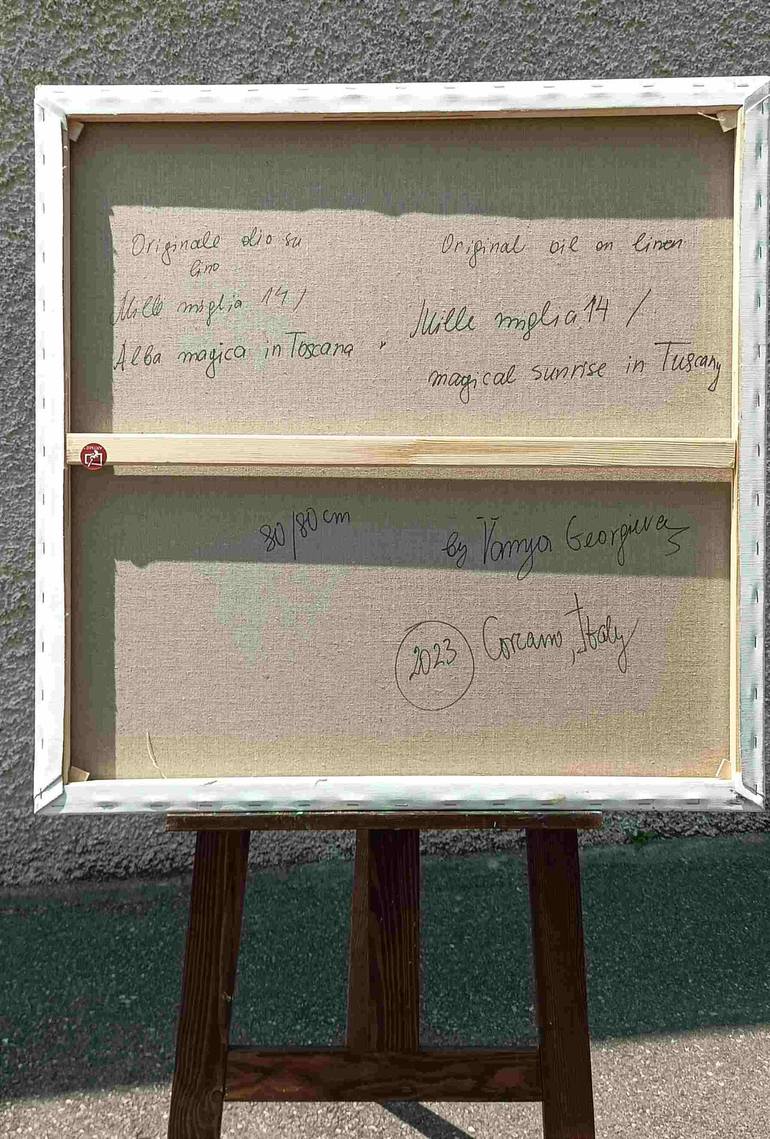 Originale olio su
lino
Mille miglia 14 /
Alba magica in Toscana
Original oil on linen
Mille miglia 14 /
magical sunrise in Tuscany
80/80cm
by Vanya Georgieva
2023
Corcano, Italy